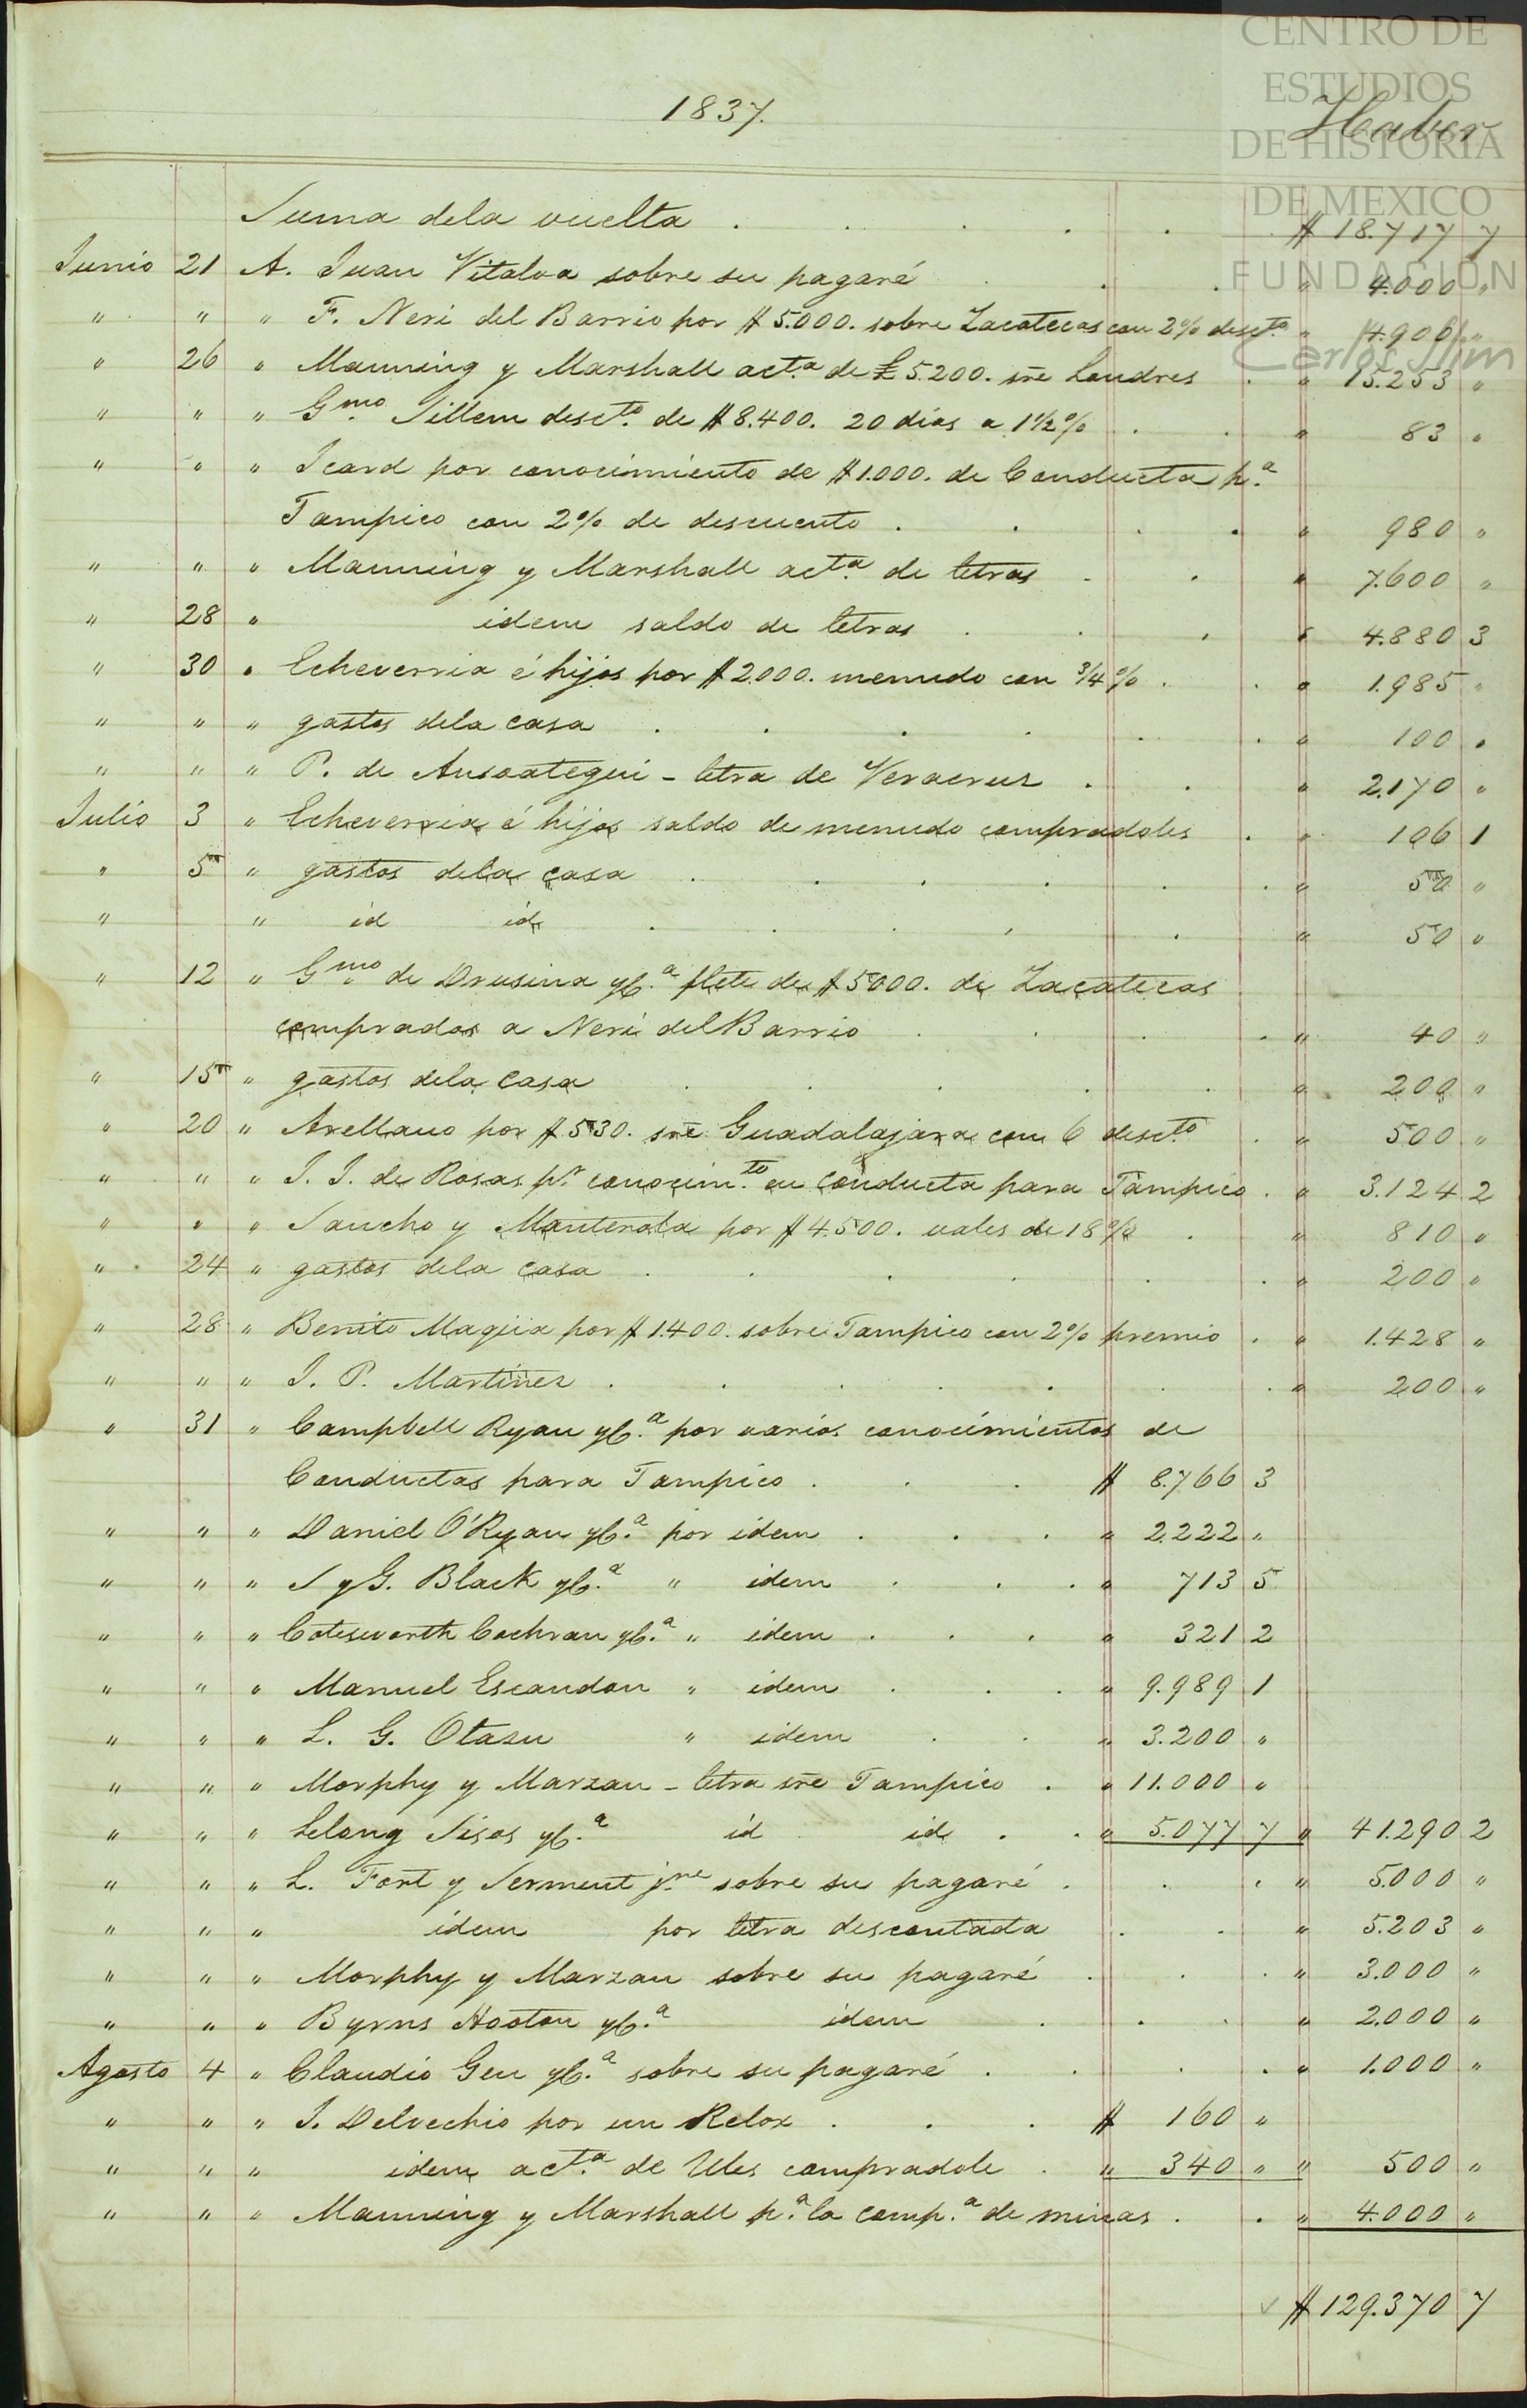 CENTRO DE
ESTUDIOS
DE HISTORIA
DE MEXICO
FUNDACIÓN
Carlos Slim
1837.
Haber
Suma dela vuelta . . . . . $ 18.717 7
Junio 21 A. Juan Vitalva sobre su pagaré . . . " 4.000 "
" " " F. Neri del Barrio por $ 5.000. sobre Zacatecas con 2% desc.to " 4.900 "
" 26 " Manning y Marshall act.a de £ 5.200. sre Londres . " 15.253 "
" " " Gmo Sillem desct.o de $ 8.400. 20 dias a 1 1/2 % . . " 83 "
" " " Icard por conocimiento de $ 1.000. de Conducta p.a
Tampico con 2% de descuento . . . . " 980 "
" " " Manning y Marshall act.a de letras . . " 7.600 "
" 28 " idem saldo de letras . . . " 4.880 3
" 30 " Echeverria é hijos por $ 2.000. menudo con 3/4 % . . " 1.985 "
" " " gastos dela casa . . . . . . " 100 "
" " " P. de Ansoategui - letra de Veracruz . . " 2.170 "
Julio 3 " Echeverria é hijos saldo de menudo compradoles . " 106 1
" 5 " gastos dela casa . . . . . . " 50 "
" " id id . . . . . " 50 "
" 12 " Gmo de Drusina yC.a flete de $ 5000. de Zacatecas
comprados a Neri del Barrio . . . . " 40 "
" 15 " gastos dela casa . . . . . " 200 "
" 20 " Arellano por $ 530. sre Guadalajara con 6 desct.o . " 500 "
" " " J. J. de Rosas p.r conocim.to en conducta para Tampico . " 3.124 2
" " " Sancho y Manterola por $ 4.500. vales de 18 % . " 810 "
" 24 " gastos dela casa . . . . . . " 200 "
" 28 " Benito Maqua por $ 1.400. sobre Tampico con 2% premio . " 1.428 "
" " " J. P. Martinez . . . . . . . " 200 "
" 31 " Campbell Ryan yC.a por varios conocimientos de
Conductas para Tampico . . . $ 8.766 3
" " " Daniel O'Ryan yC.a por idem . . . " 2.222 "
" " " S y G. Black yC.a " idem . . . " 713 5
" " " Cotesworth Cochran yC.a " idem . . . " 321 2
" " " Manuel Escandon " idem . . . " 9.989 1
" " " L. G. Otazu " idem . . " 3.200 "
" " " Morphy y Marzan - letra sre Tampico . " 11.000 "
" " " Lelong Sisos yC.a id id . . " 5.077 7 " 41.290 2
" " " L. Fort y Serment jne sobre su pagaré . . . " 5.000 "
" " " idem por letra descontada . . " 5.203 "
" " " Morphy y Marzan sobre su pagaré . . . " 3.000 "
" " " Byrns Hooton yC.a idem . . . " 2.000 "
Agosto 4 " Claudio Gen yC.a sobre su pagaré . . . . " 1.000 "
" " " J. Delvechio por un Relox . . . $ 160 "
" " " idem act.a de Ules compradole . " 340 " " 500 "
" " " Manning y Marshall p.a la comp.a de minas . . " 4.000 "
$ 129.370 7